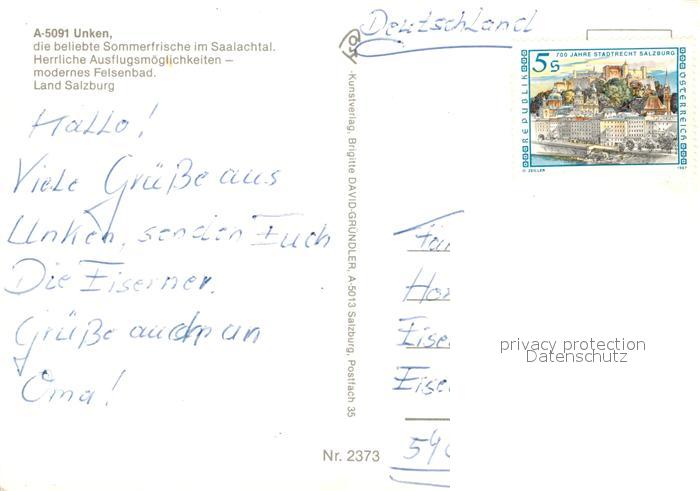 A-5091 Unken,
die beliebte Sommerfrische im Saalachtal.
Herrliche Ausflugsmöglichkeiten –
modernes Felsenbad.
Land Salzburg
Hallo!
Viele Grüße aus
Unken, senden Euch
Die Eiserner.
Grüße auch an
Oma!
-Kunstverlag, Brigitte DAVID-GRÜNDLER, A-5013 Salzburg, Postfach 35
Nr. 2373
Deutschland
5 S
700 JAHRE STADTRECHT SALZBURG
REPUBLIK
ÖSTERREICH
O. ZEILLER
1987
Eise
Eise
privacy protection
Datenschutz